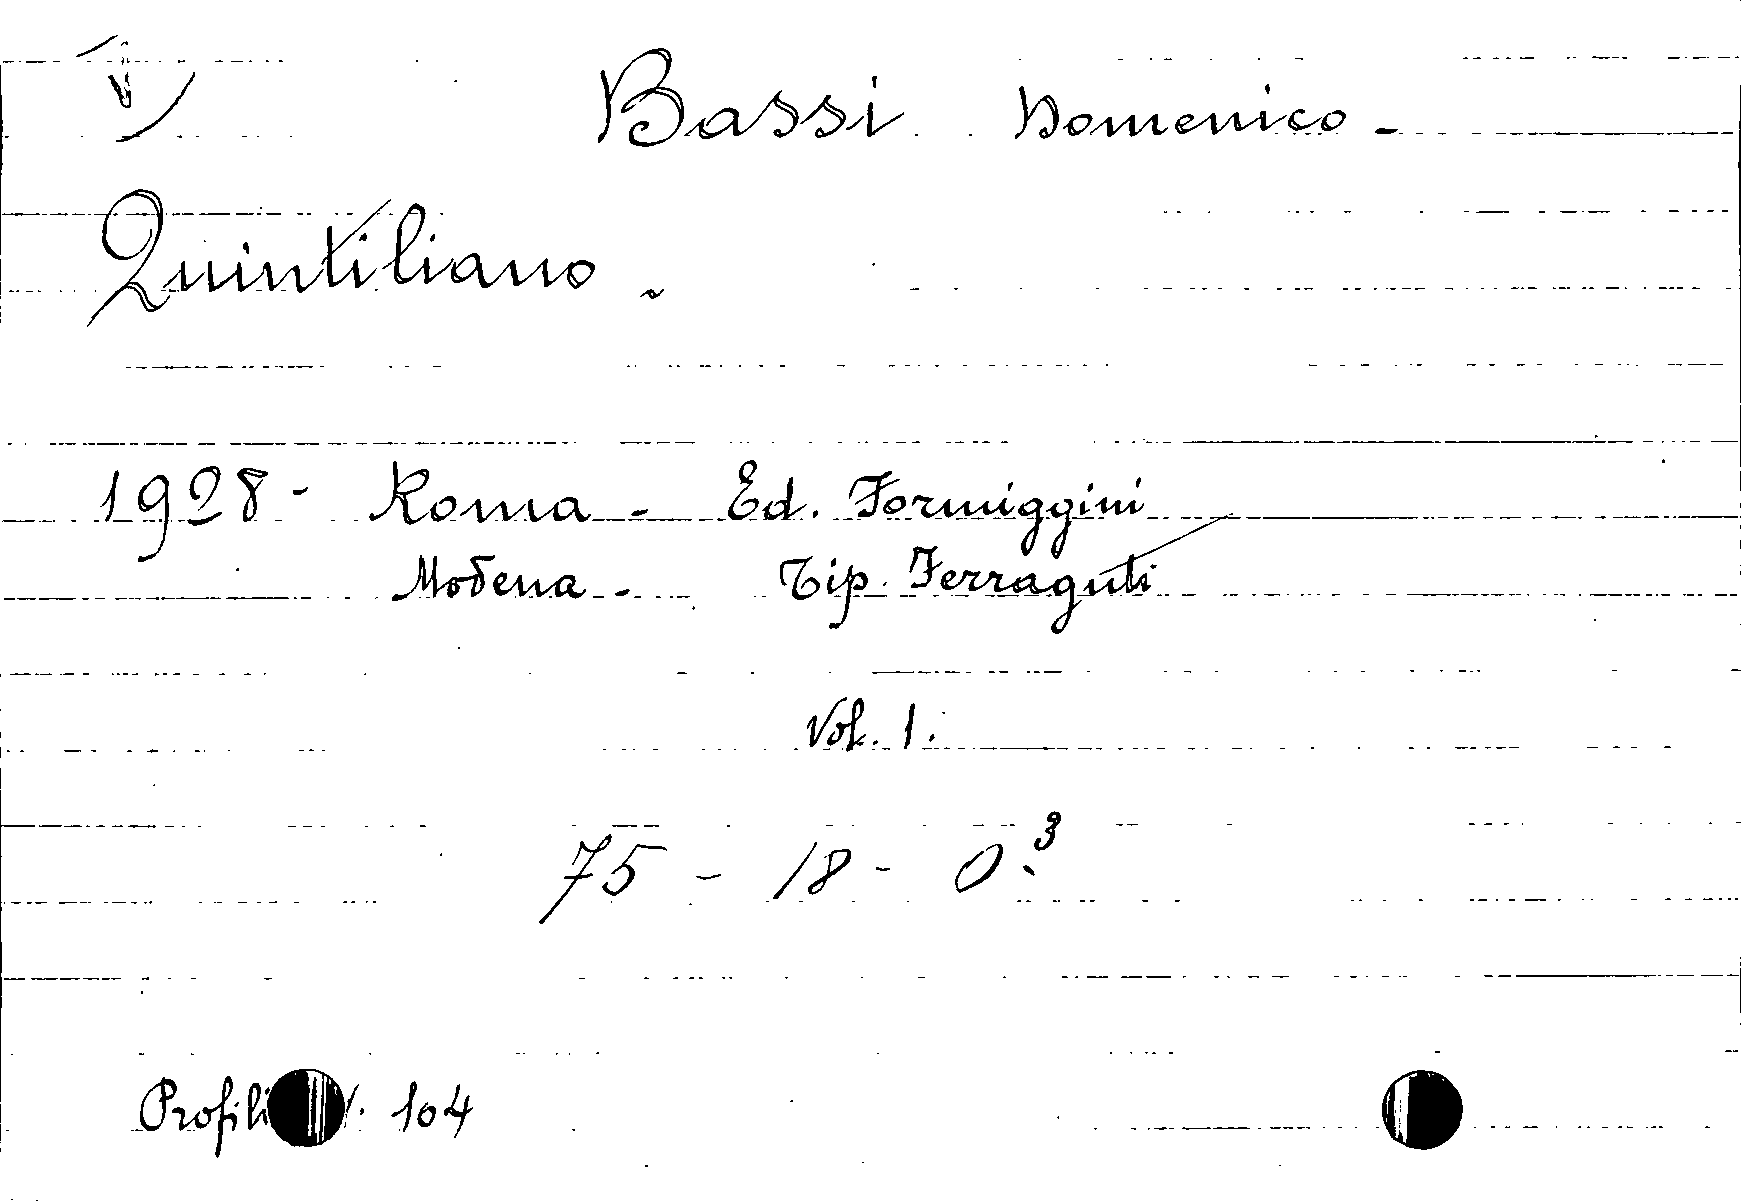 Bassi Domenico -
Quintiliano -
1928 - Roma - Ed. Formiggini
Modena - Tip. Ferraguti
Vol. 1.
75 - 18 - 0.³
Profili 104